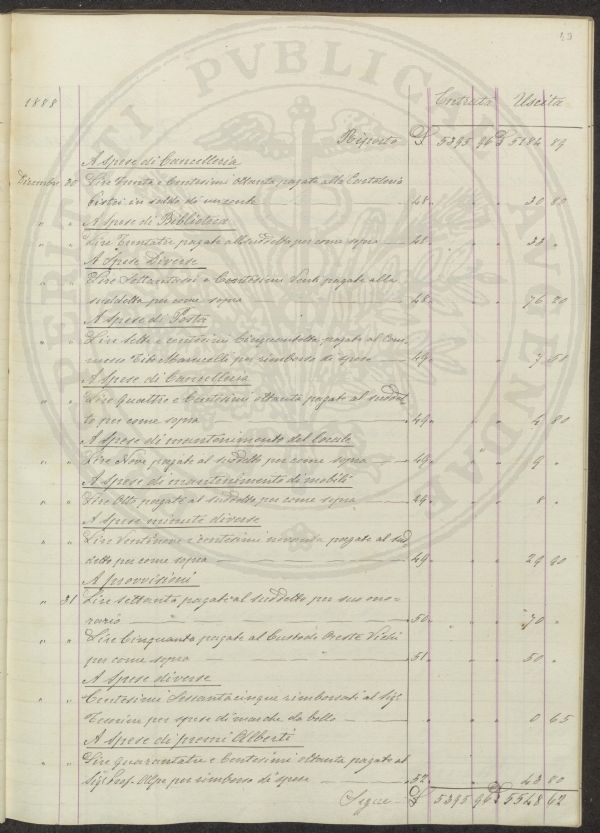 49
PERITI PVBLICAE AGENDAE
1888
Entrata Uscita
Riporto £ 5395 96 £ 5184 89
A Spese di Cancelleria
Dicembre 30 Lire Trenta e Centesimi Ottanta pagate alla Cartoleria
Pistoi in saldo di un conto 48. 30 80
A Spese di Biblioteca
" " Lire Trentatre pagate alla suddetta per come sopra 48. 33 "
A Spese Diverse
" " Lire Settantasei e Centesimi Venti pagate alla
suddetta per come sopra 48. 76 20
A Spese di Posta
" " Lire Sette e centesimi Cinquantotto pagate al Com-
messo Tito Marucelli per rimborso di spese 49. 7 58
A Spese di Cancelleria
" " Lire Quattro e Centesimi ottanta pagate al suddet-
to per come sopra 49. 4 80
A Spese di mantenimento del locale
" " Lire Nove pagate al suddetto per come sopra 49. 9 "
A Spese di mantenimento di mobili
" " Lire Otto pagate al suddetto per come sopra 49. 8 "
A Spese minute diverse
" " Lire Ventinove e centesimi novanta pagate al sud-
detto per come sopra 49. 29 90
A provvisioni
" 31 Lire settanta pagate al suddetto per suo ono-
rario 50. 70 "
" " Lire Cinquanta pagate al Custode Oreste
per come sopra 51. 50 "
A Spese diverse
" " Centesimi Sessantacinque rimborsati al Sigr
Tesoriere per spese di marche da bollo " 0 65
A Spese di premi Alberti
" " Lire quarantatre e Centesimi ottanta pagate al
Sigr Prof. Alpe per rimborso di spese 52. 43 80
Segue £ 5395 96 £ 5548 62